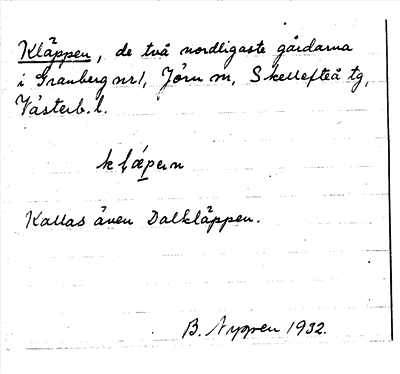 Kläppen, de två nordligaste gårdarna
i Granberg nr 1, Jörn sn, Skellefteå tg,
Västerb. l.
kḷæ̀pen
Kallas även Dalkläppen.
B. Nyppen 1932.